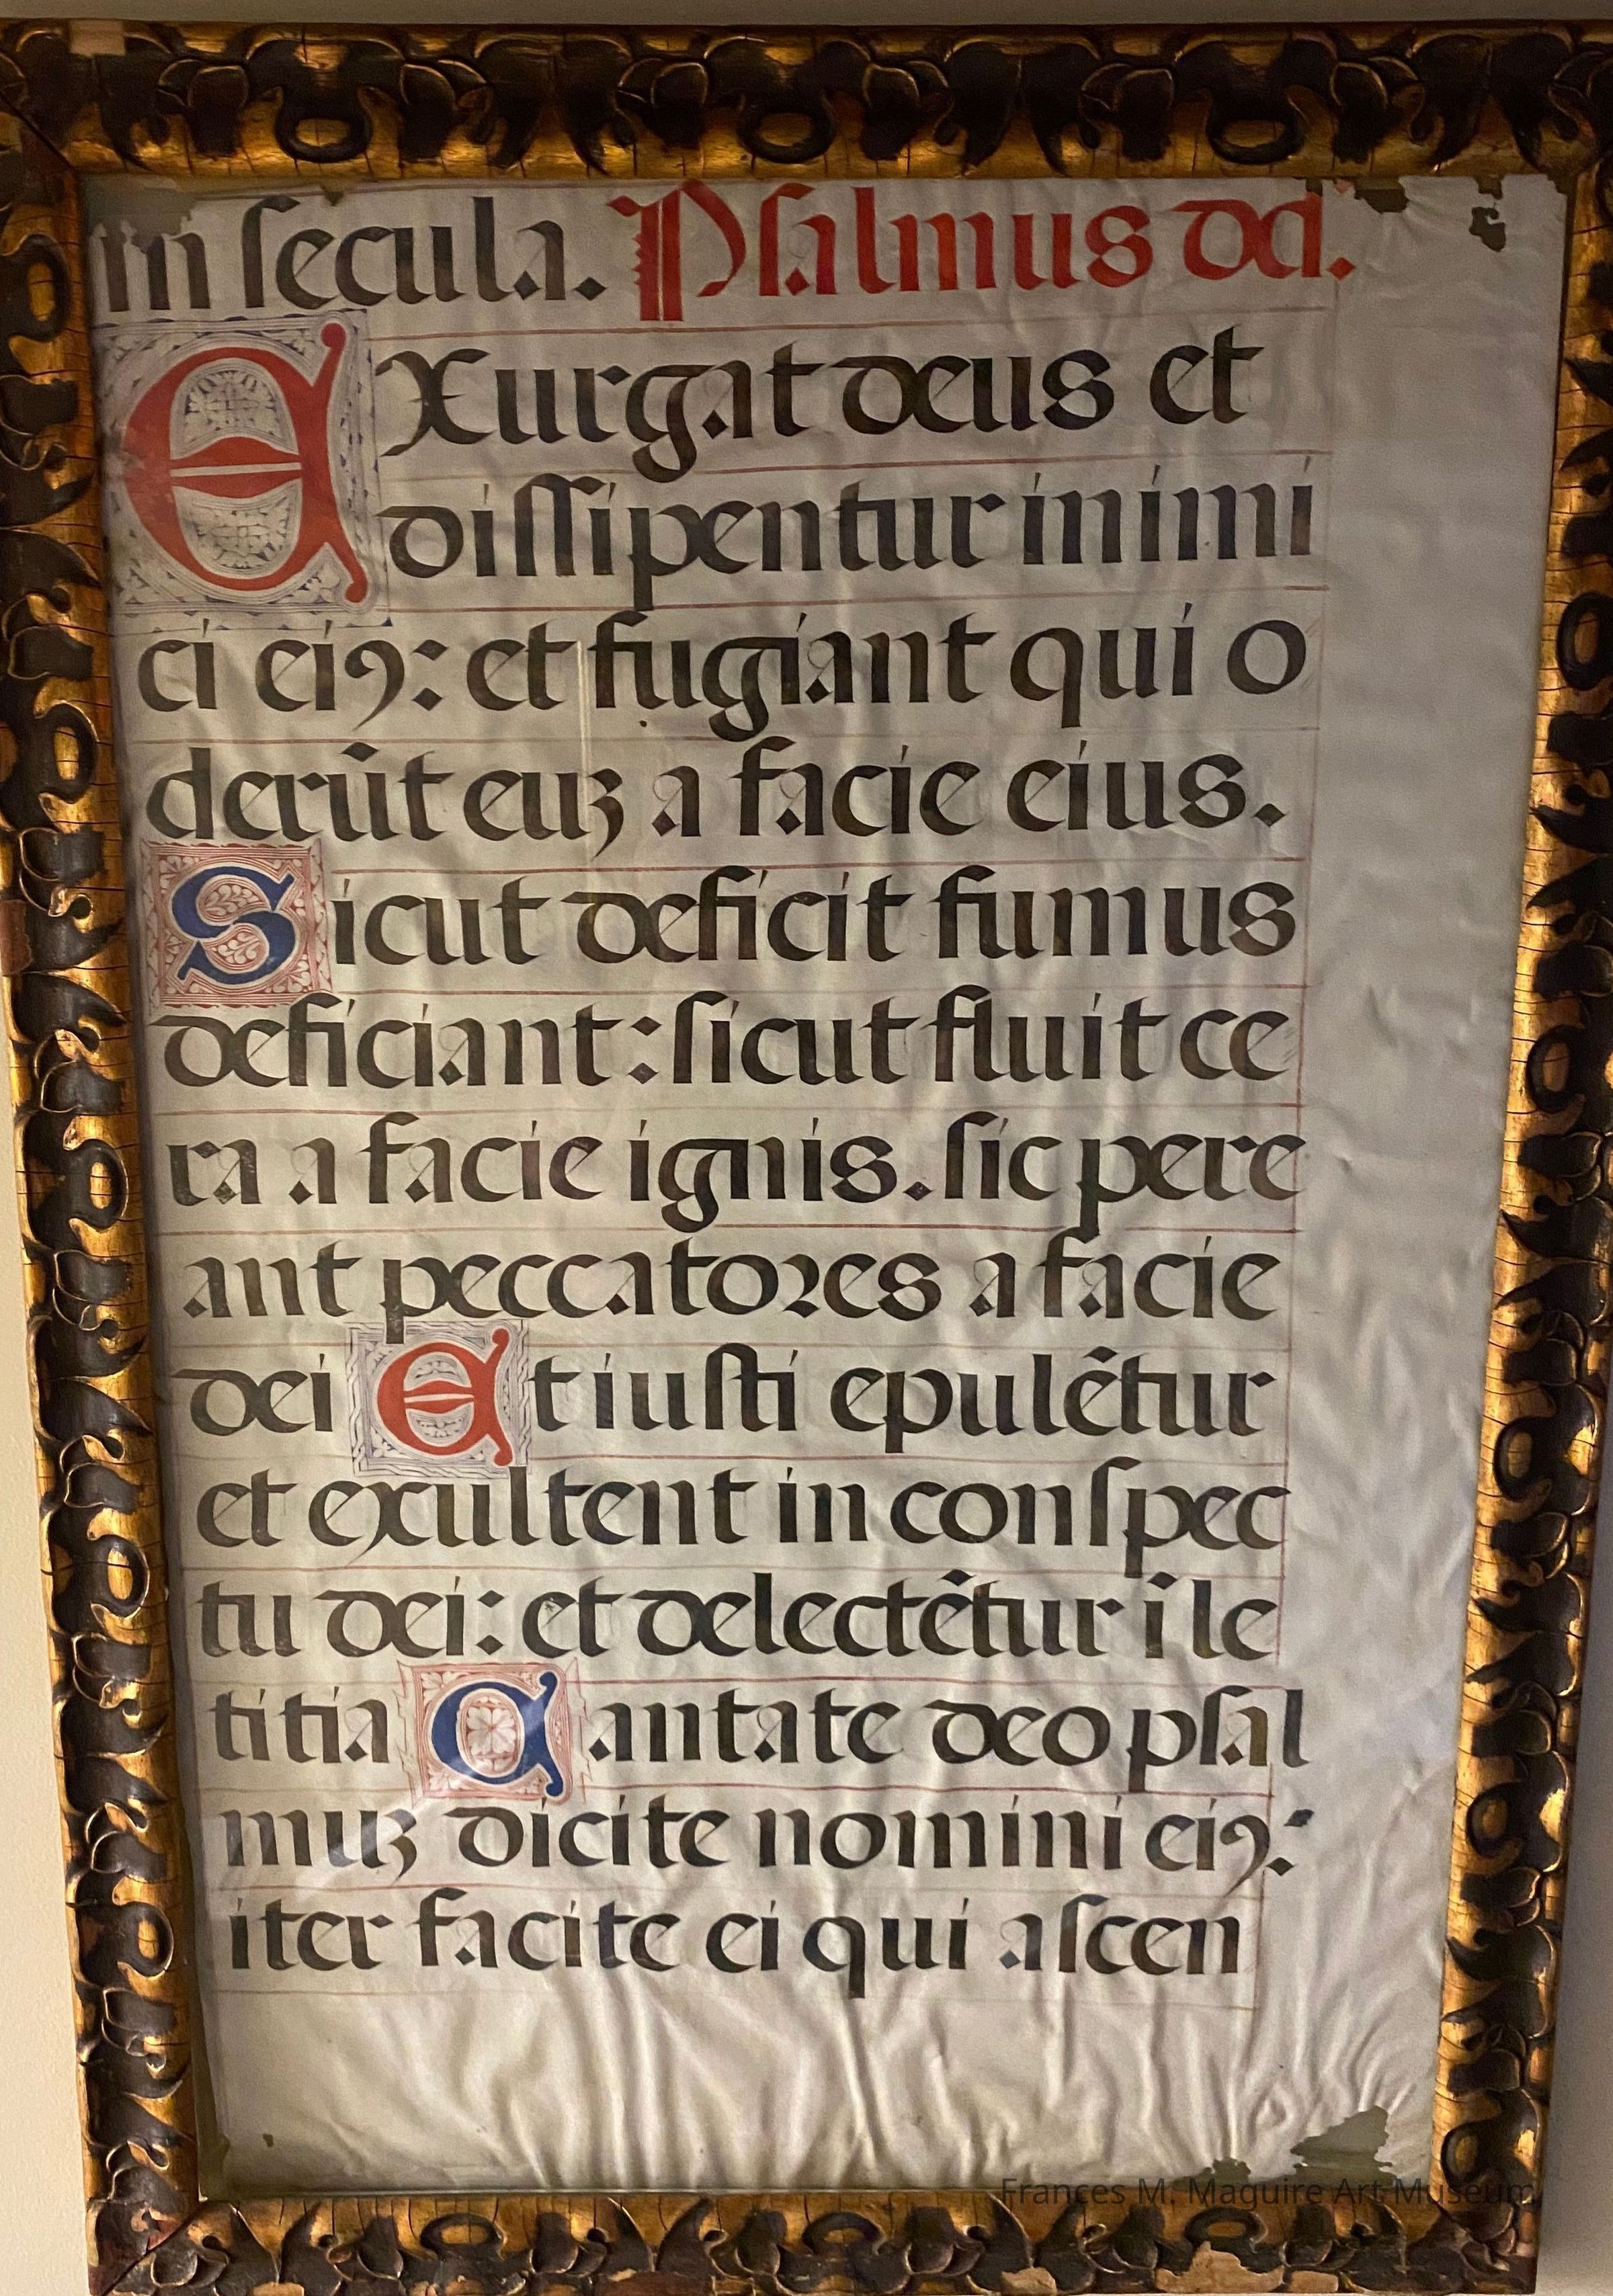 in secula. Psalmus dd.
EXurgat deus et
dissipentur inimi
ci eiꝯ: et fugiant qui o
derūt euꝫ a facie eius.
Sicut deficit fumus
deficiant: sicut fluit ce
ra a facie ignis. sic pere
ant peccatores a facie
dei Et iusti epulētur
et exultent in conspec
tu dei: et delectētur ī le
titia Cantate deo psal
muꝫ dicite nomini eiꝯ:
iter facite ei qui ascen
Frances M. Maguire Art Museum